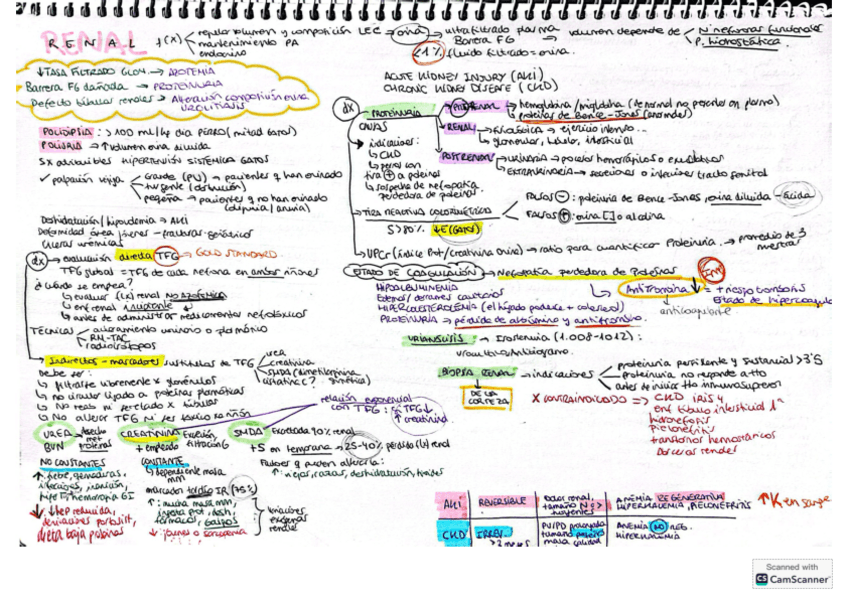 RENAL f(x)
regular volumen y composición LEC → orina
mantenimiento PA
endocrino
ultrafiltrado plasma
Barrera FG
<1% fluido filtrado = orina
volumen depende de
Nº nefronas funcionales
P. hidrostática
↓TASA FILTRADO GLOM. → AZOTEMIA
Barrera FG dañada → PROTEINURIA
Defecto túbulos renales → Alteración composición orina
UROLITIASIS
ACUTE KIDNEY INJURY (AKI)
CHRONIC KIDNEY DISEASE (CKD)
POLIDIPSIA: >100 mL/kg día PERRO (mitad gatos)
POLIURIA → ↑volumen orina diluida
SX atribuibles HIPERTENSIÓN SISTÉMICA GATOS
✓ palpación vejiga
Grande (PU) → pacientes q han orinado
turgente (obstrucción)
pequeña → pacientes q no han orinado
(oliguria / anuria)
Deshidratación / hipovolemia → AKI
Deformidad área jóvenes - fracturas
Úlceras urémicas
dx
PROTEINURIA
PRERRENAL → hemoglobina / mioglobina (de normal no presentes en plasma)
proteínas de Bence-Jones (anormales)
RENAL → FISIOLÓGICA → ejercicio intenso...
glomerular, tubular, intersticial
POSTRENAL → URINARIA → procesos hemorrágicos o exudativos
EXTRAURINARIA → secreciones o infecciones tracto genital
indicaciones:
↳ CKD
↳ perros con
tira ⊕ a proteínas
↳ sospecha de nefropatía
perdedora de proteínas
→ TIRA REACTIVA COLORIMÉTRICO
FALSOS ⊖: proteinuria de Bence-Jones, orina diluida - ácida
FALSOS ⊕: orina [ ] o alcalina
S>80% ↓E (GATOS)
→ UPCr (índice Prot/creatinina orina) → ratio para cuantificar Proteinuria → promedio de 3
muestras
dx → evaluación directa TFG → GOLD STANDARD
TFG global = TFG de cada nefrona en ambos riñones
¿Cuándo se emplea?
↳ evaluar f(x) renal NO AZOTÉMICA
↳ enf renal incipiente
↳ antes de administrar medicamentos nefrotóxicos
TÉCNICAS
aclaramiento urinario o plasmático
RM-TAC
radioisótopos
ESTADO DE COAGULACIÓN → Nefropatía perdedora de Proteínas
HIPOALBUMINEMIA
Edema / derrames cavitarios
HIPERCOLESTEROLEMIA (el hígado produce + colesterol)
PROTEINURIA → pérdida de albúmina y antitrombina
Antitrombina ↓ = + riesgo trombosis
Estado de hipercoagula
anticoagulante
URIANÁLISIS → Isostenuria (1.008-1012):
urocultivo/Antibiograma
→ Indirectos - marcadores sustitutos de TFG
urea
creatinina
SDMA (dimetilarginina
simétrica)
cistatina C?
Debe ser:
↳ filtrarse libremente x glomérulos
↳ no circular ligado a proteínas plasmáticas
↳ No reabs ni secretado x túbulos
↳ No alterar TFG ni ser tóxico
relación exponencial
con TFG: si TFG↓
↑creatinina
BIOPSIA RENAL → indicaciones
proteinuria persistente y sustancial >3'5
proteinuria no responde a tto
antes de iniciar tto inmunosupresor
DE LA
CORTEZA
X CONTRAINDICADO ⇒ CKD iris 4
enf túbulo intersticial 1ª
hidronefrosis
Pielonefritis
trastornos hemostáticos
UREA
BUN
desecho
met
proteínas
CREATININA
Excreción,
filtración G
+ empleado
SDMA → Excretada 90% renal
+S en temprana → 25-40% pérdida f(x) renal
NO CONSTANTES
CONSTANTE
↳ dependiente masa
mm
marcador tardío IR (75%)
↓jóvenes o sarcopenia
dieta baja proteínas
Variaciones
AKI REVERSIBLE
Dolor renal,
tamaño N o >
ANEMIA REGENERATIVA
HIPERKALEMIA, PIELONEFRITIS
↑K en sangre
CKD IRREV.
>3 meses
PU/PD
tamaño pequeño
mala calidad
ANEMIA NO REG.
HIPERKALEMIA
Scanned with
CS CamScanner